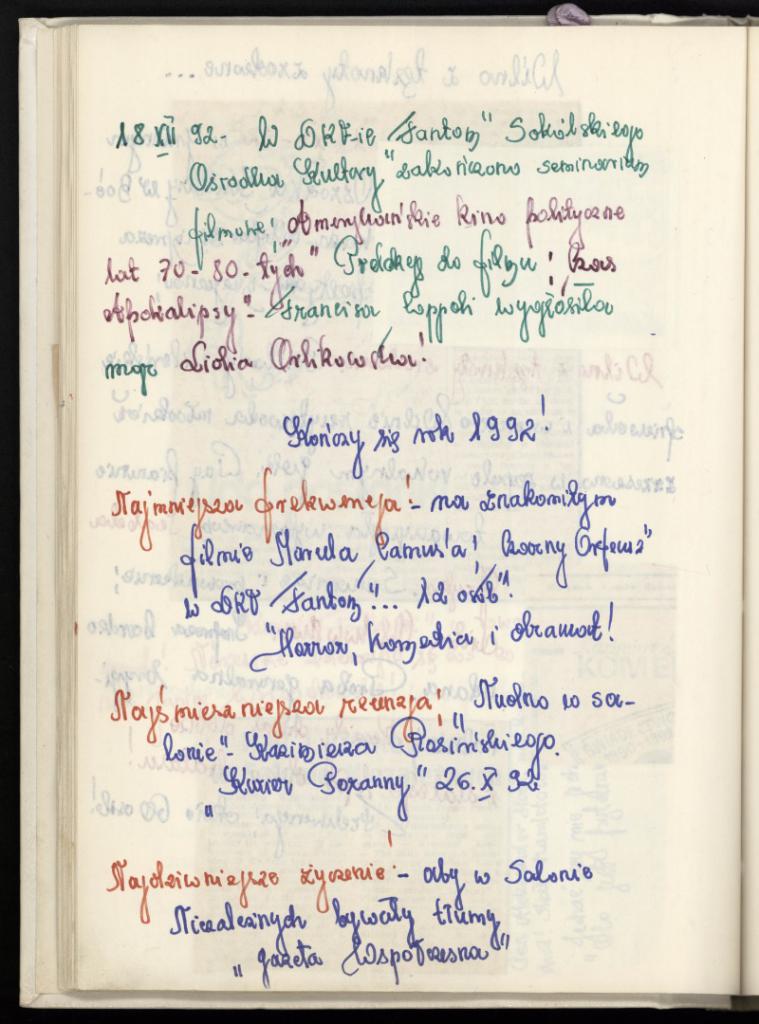 18 XII 92 - W DKF-ie "Fantom" Sokólskiego
Ośrodka Kultury zakończono seminarium
filmowe! "Amerykańskie kino polityczne
lat 70-80-tych" Prelekcję do filmu: "Czas
Apokalipsy" - Francisa Coppoli wygłosiła
mgr Lidia Orlikowska!
Kończy się rok 1992!
Najmniejsza frekwencja! - na znakomitym
filmie Marcela Camus'a! "Czarny Orfeusz"
w DKF "Fantom"... 12 osób!
"Horror, komedia i dramat!
Najśmieszniejsza recenzja! "Nudno w sa-
lonie" - Kazimierza Rosińskiego.
"Kurier Poranny" 26.X 92
Najdziwniejsze życzenie! - aby w Salonie
Niezależnych bywały tłumy
"gazeta Współczesna"